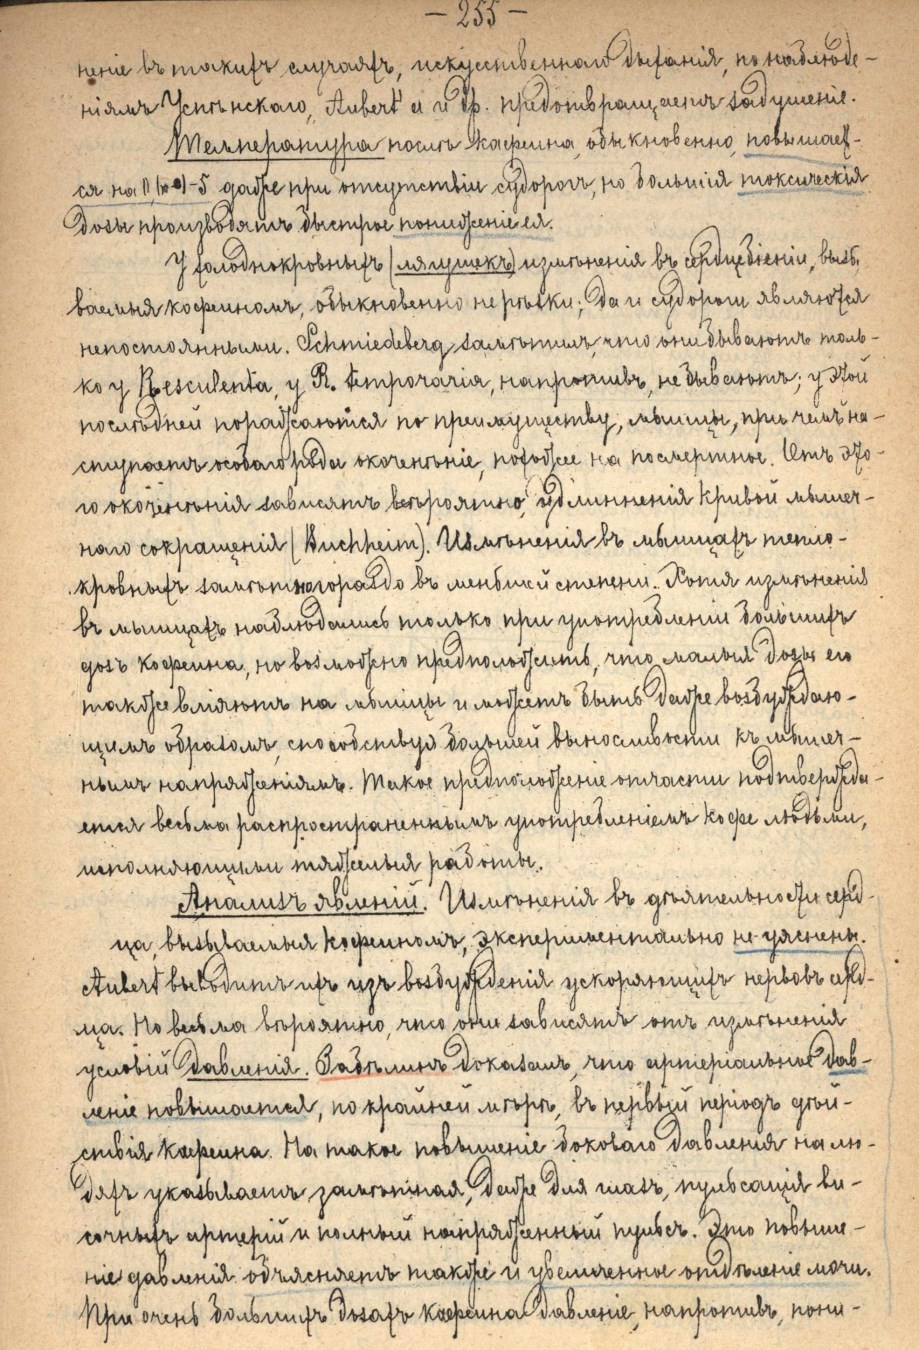 — 255 —
неніе въ такихъ случаяхъ, искусственнаго дыханія, по наблюде-
ніямъ Успенскаго, Aubert'а и др. предотвращаетъ задушеніе.
Температура послѣ кофеина, обыкновенно, повышает-
ся на даже при отсутствіи судорогъ, но большія токсическія
дозы производятъ быстрое пониженіе ея.
У холоднокровныхъ (лягушекъ) измѣненія въ сердцебіеніи, вызы-
ваемыя кофеиномъ, обыкновенно не рѣзки; да и судороги являются
непостоянными. Schmiedeberg замѣтилъ, что они бываютъ толь-
ко у R. esculenta, у R. temporaria, напротивъ, не бываютъ; у этой
послѣдней поражаются по преимуществу, мышцы, при чемъ на-
ступаетъ особаго рода окоченѣніе, похожее на посмертное. Отъ это-
го окоченѣнія зависятъ вѣроятно, удлинненія кривой мышеч-
наго сокращенія (Buchheim). Измѣненія въ мышцахъ тепло-
кровныхъ замѣтны гораздо въ меньшей степени. Хотя измѣненія
въ мышцахъ наблюдались только при употребленіи большихъ
дозъ кофеина, но возможно предположить, что малыя дозы его
также вліяютъ на мышцы и можетъ быть даже возбуждаю-
щимъ образомъ, способствуя большей выносливости къ мышеч-
нымъ напряженіямъ. Такое предположеніе отчасти подтвержда-
ется весьма распространеннымъ употребленіемъ кофе людьми,
исполняющими тяжелыя работы.
Анализъ явленій. Измѣненія въ дѣятельности серд-
ца, вызываемыя кофеиномъ, экспериментально не уяснены.
Aubert выводитъ ихъ изъ возбужденія ускоряющихъ нервовъ серд-
ца. Но весьма вѣроятно, что они зависятъ отъ измѣненія
условій давленія. Забѣлинъ доказалъ, что артеріальное дав-
леніе повышается, по крайней мѣрѣ, въ первый періодъ дѣй-
ствія кофеина. На такое повышеніе боковаго давленія на лю-
дяхъ указываетъ замѣтная, даже для глазъ, пульсація ви-
сочныхъ артерій и полный напряженный пульсъ. Это повыше-
ніе давленія объясняетъ также и увеличенное отдѣленіе мочи.
При очень большихъ дозахъ кофеина давленіе, напротивъ, пони-